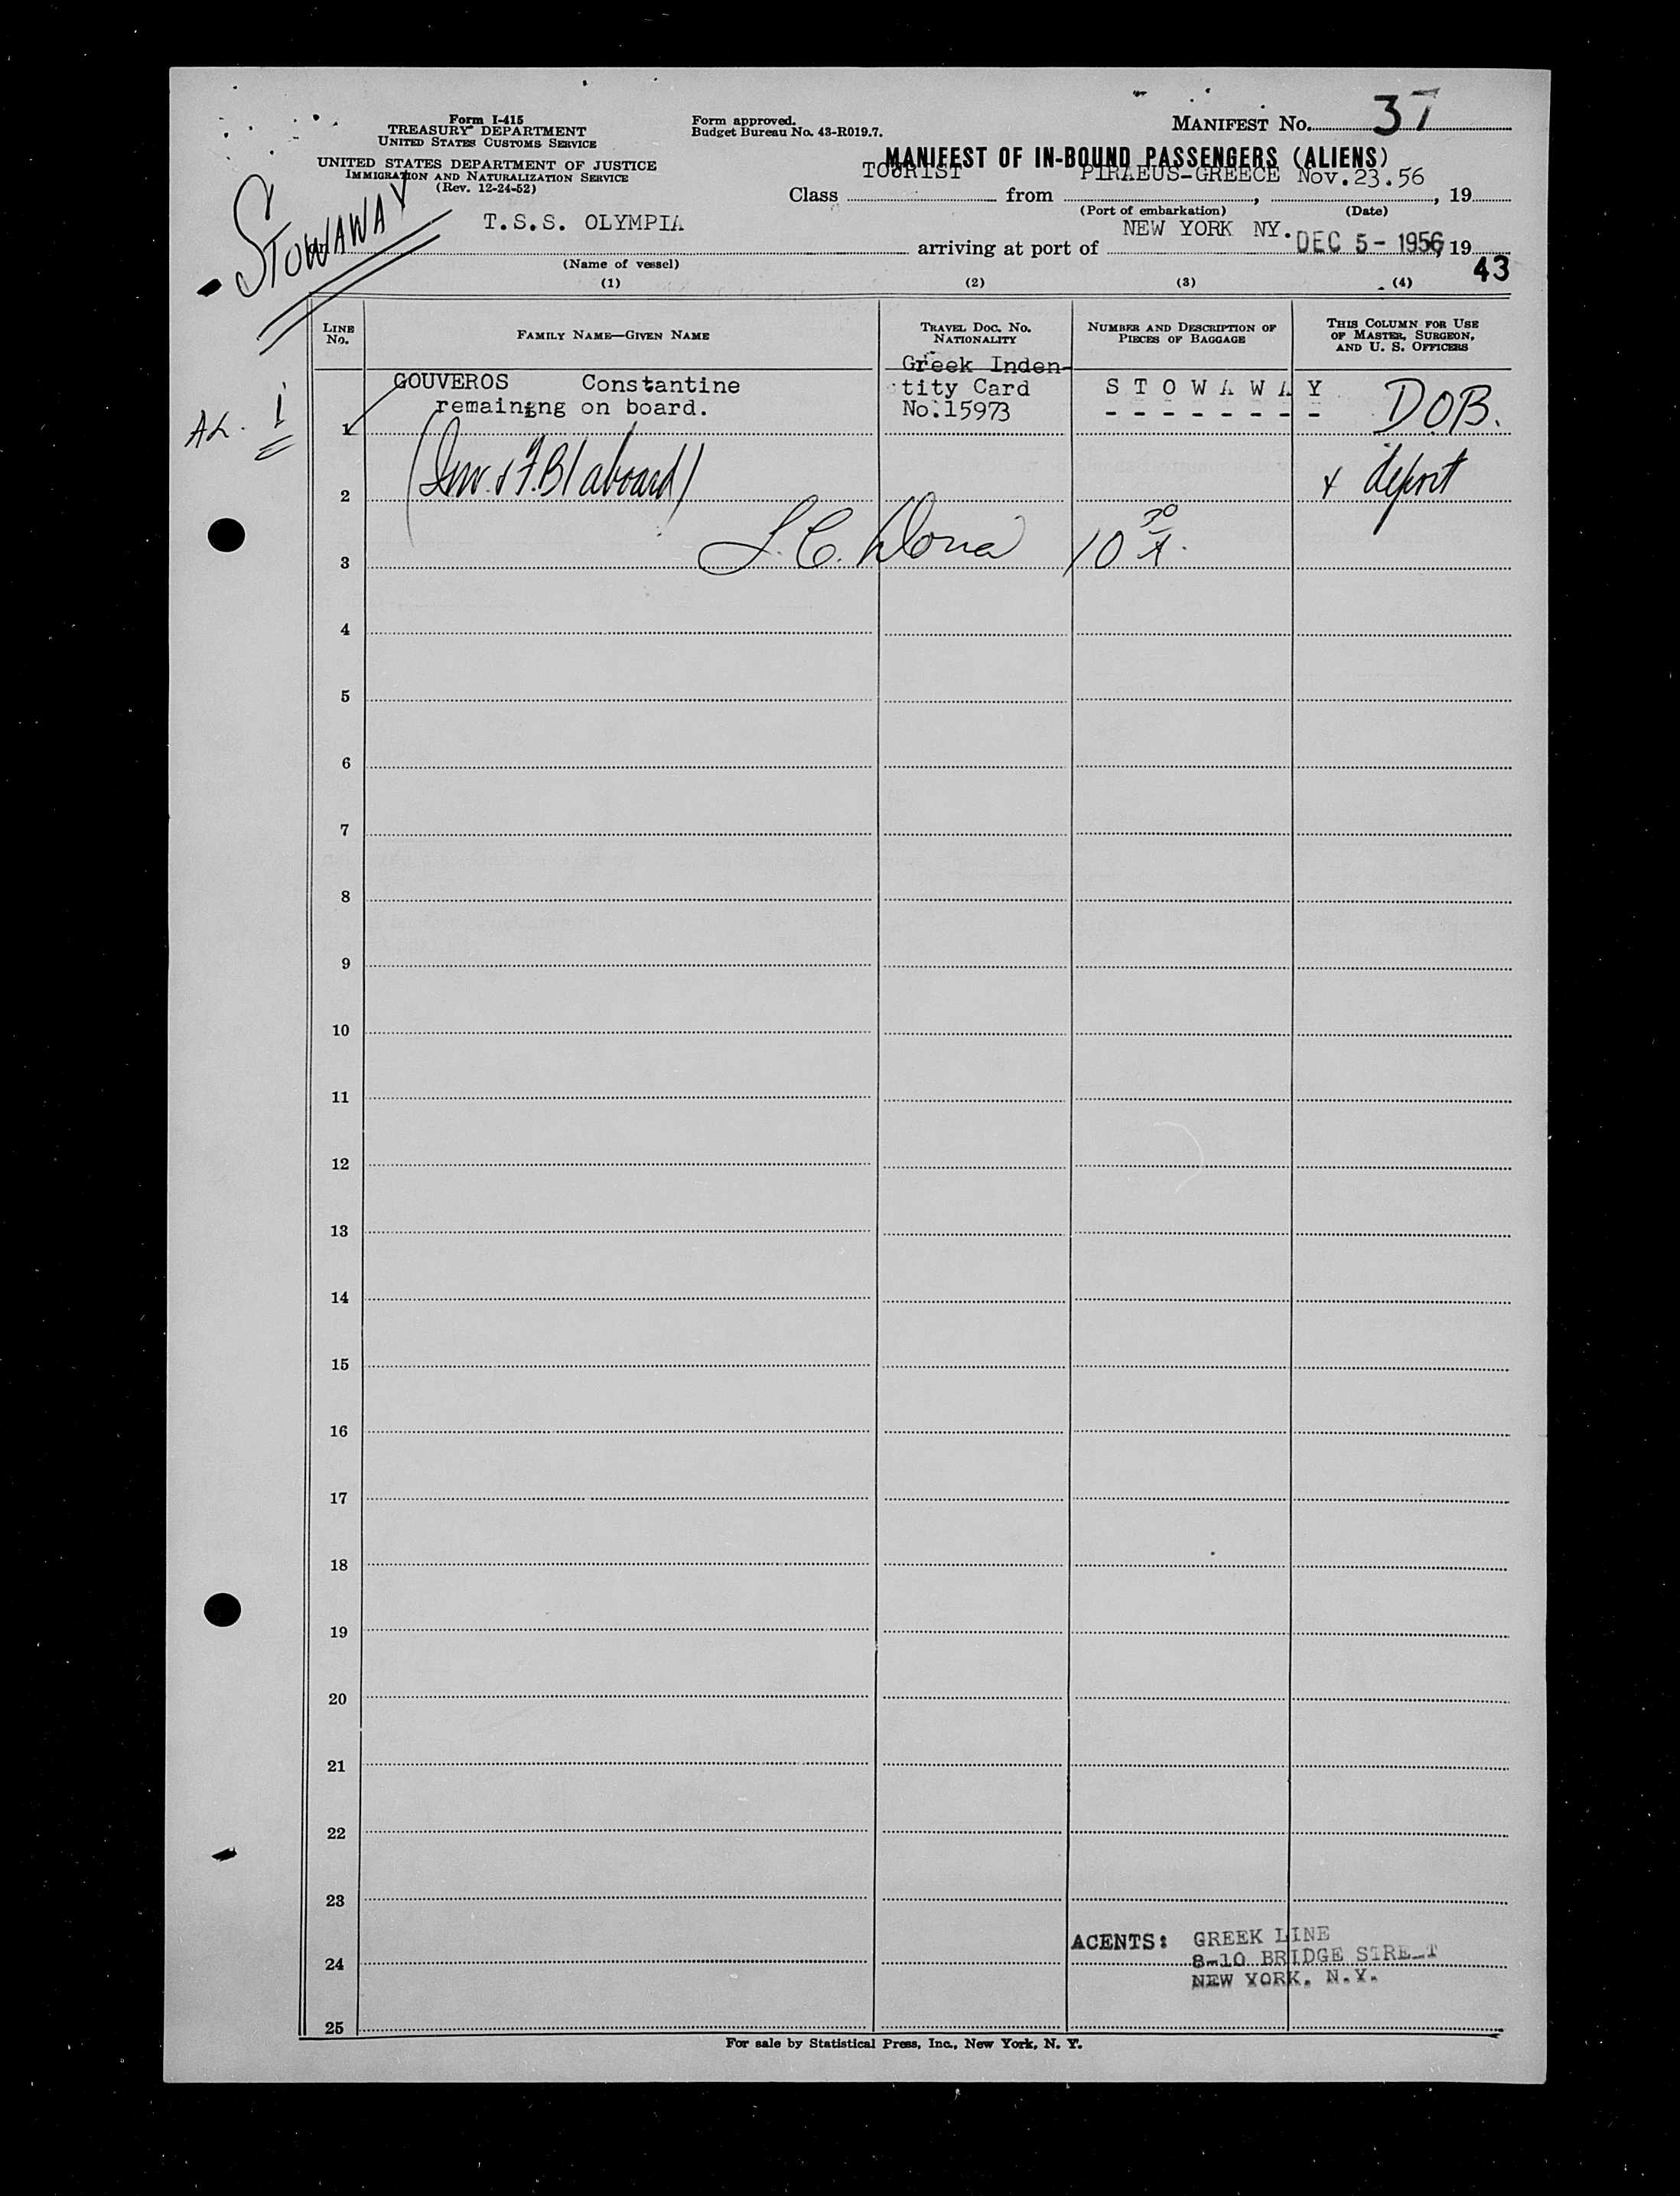 Form I-415
TREASURY DEPARTMENT
UNITED STATES CUSTOMS SERVICE
UNITED STATES DEPARTMENT OF JUSTICE
IMMIGRATION AND NATURALIZATION SERVICE
(Rev. 12-24-52)
Form approved.
Budget Bureau No. 43-R019.7.
MANIFEST No. 37
MANIFEST OF IN-BOUND PASSENGERS (ALIENS)
STOWAWAY
Class TOURIST from PIRAEUS-GREECE, Nov.23.56, 19
(Port of embarkation) (Date)
T.S.S. OLYMPIA arriving at port of NEW YORK NY. DEC 5 - 1956, 19
(Name of vessel)
43
(1) (2) (3) (4)
LINE No.
FAMILY NAME—GIVEN NAME
TRAVEL DOC. No. NATIONALITY
NUMBER AND DESCRIPTION OF PIECES OF BAGGAGE
THIS COLUMN FOR USE OF MASTER, SURGEON, AND U. S. OFFICERS
Greek Inden-
GOUVEROS Constantine tity Card S T O W A W A Y DOB.
remaining on board. No.15973 - - - - - - - -
1
2 aboard) + deport
3 10 30
4
5
6
7
8
9
10
11
12
13
14
15
16
17
18
19
20
21
22
23
ACENTS: GREEK LINE
24 8-10 BRIDGE STREET
NEW YORK. N.Y.
25
For sale by Statistical Press, Inc., New York, N. Y.